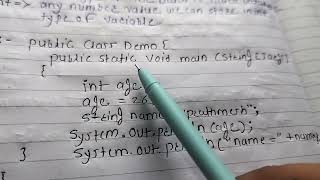 => any number value we can store in
type of variable
:- public class Demo {
public static void main (String[]args)
{
int age
age = 26
string name "prathmesh";
system.out.println(age);
system.out.println("name =" +name
}